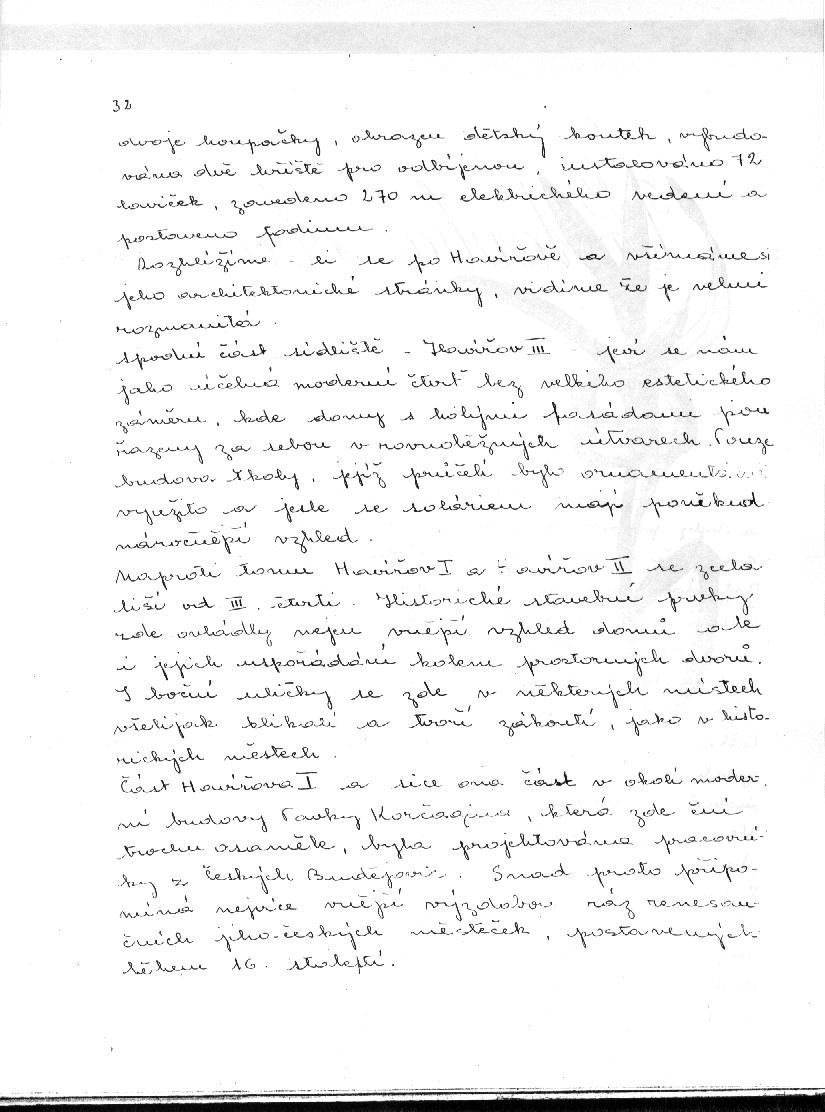 32
dvoje houpačky, ohrazen dětský koutek, vybudo-
vána dvě hřiště pro odbíjenou, instalováno 72
laviček, zavedeno 270 m elektrického vedení a
postaveno podium.
Rozhlížíme - li se po Havířově a všímáme si
jeho architektonické stránky, vidíme že je velmi
rozmanitá.
Spodní část sídliště - Havířov III - jeví se nám
jako účelná moderní čtvrť bez velkého estetického
záměru, kde domy s holými fasádami jsou
řazeny za sebou v rovnoběžných útvarech. Pouze
budova školy, jejíž průčelí bylo
využito a jesle se soláriem mají poněkud
náročnější vzhled.
Naproti tomu Havířov I a Havířov II se zcela
liší od III. čtvrti. Historické stavební prvky
zde ovládly nejen vnější vzhled domů ale
i jejich uspořádání kolem prostorných dvorů.
I boční uličky se zde v některých místech
všelijak klikatí a tvoří zákoutí, jako v histo-
rických městech.
Část Havířova I a sice ona část v okolí moder-
ní budovy Pavky Korčagina, která zde ční
trochu osaměle, byla projektována pracovní-
ky z Českých Budějovic. Snad proto připo-
míná nejvíce vnější výzdobou ráz renesan-
čních jiho-českých městeček, postavených
během 16. století.